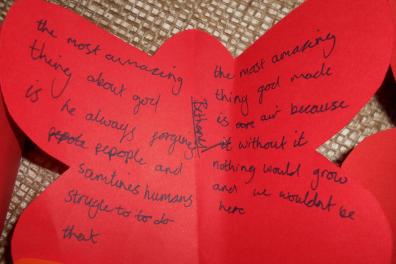 the most amazing
thing about god
is he always forgives
pepople and
samtimes humans
strugle to to do
that
Bethany
the most amazing
thing god made
is our air because
it without it
nothing would grow
and we wouldnt be
here